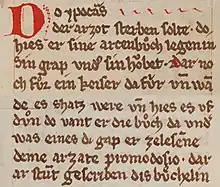 Do ypocas
der arzot sterben solte · do
hies er sine arcenbuͦch legen in
sin grap vnd sin hobet · Dar noch
fuͦr ein keiser da fuͦr vn wan
de es shatz were vn hies es vf
duͦn do vant er die buͦch da vnd
was eines d gap er zelesene
deme arzate promodosio · dar
ar stuͦnt gescriben dis buͤchelin